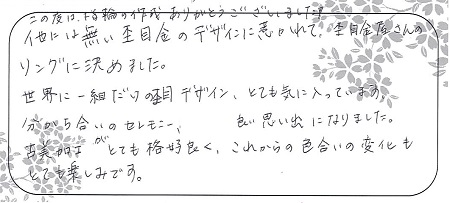 この度は、指輪の作成ありがとうございました。
他には無い杢目金のデザインに惹かれて、杢目金屋さんの
リングに決めました。
世界に一組だけの杢目デザイン、とても気に入っています。
分かち合いのセレモニー、良い思い出になりました。
古美加工がとても格好良く、これからの色合いの変化も
とても楽しみです。